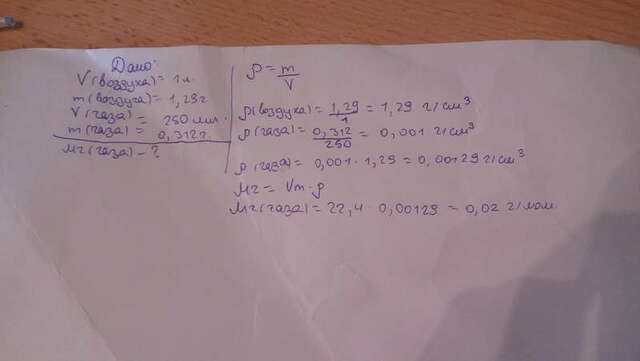 Дано:
V(воздуха) = 1 л.
m(воздуха) = 1,29 г
V(газа) = 250 мл.
m(газа) = 0,312 г.
Mг(газа) - ?
ρ = m/V
ρ(воздуха) = 1,29/1 = 1,29 г/см³
ρ(газа) = 0,312/250 = 0,001 г/см³
ρ(газа) = 0,001 · 1,29 = 0,00129 г/см³
Mг = Vm · ρ
Mг(газа) = 22,4 · 0,00129 = 0,02 г/мол